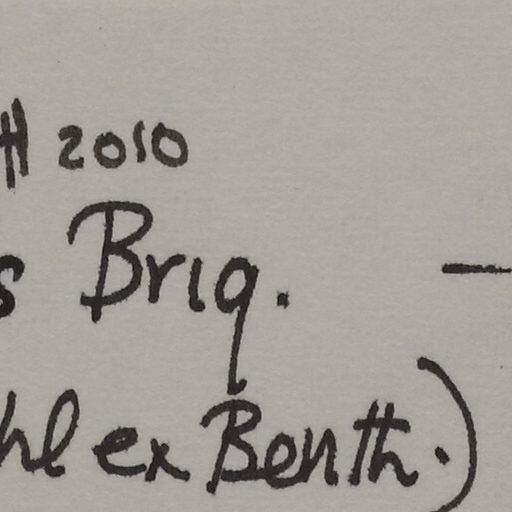 H 2010
s Briq.
hl ex Benth.)